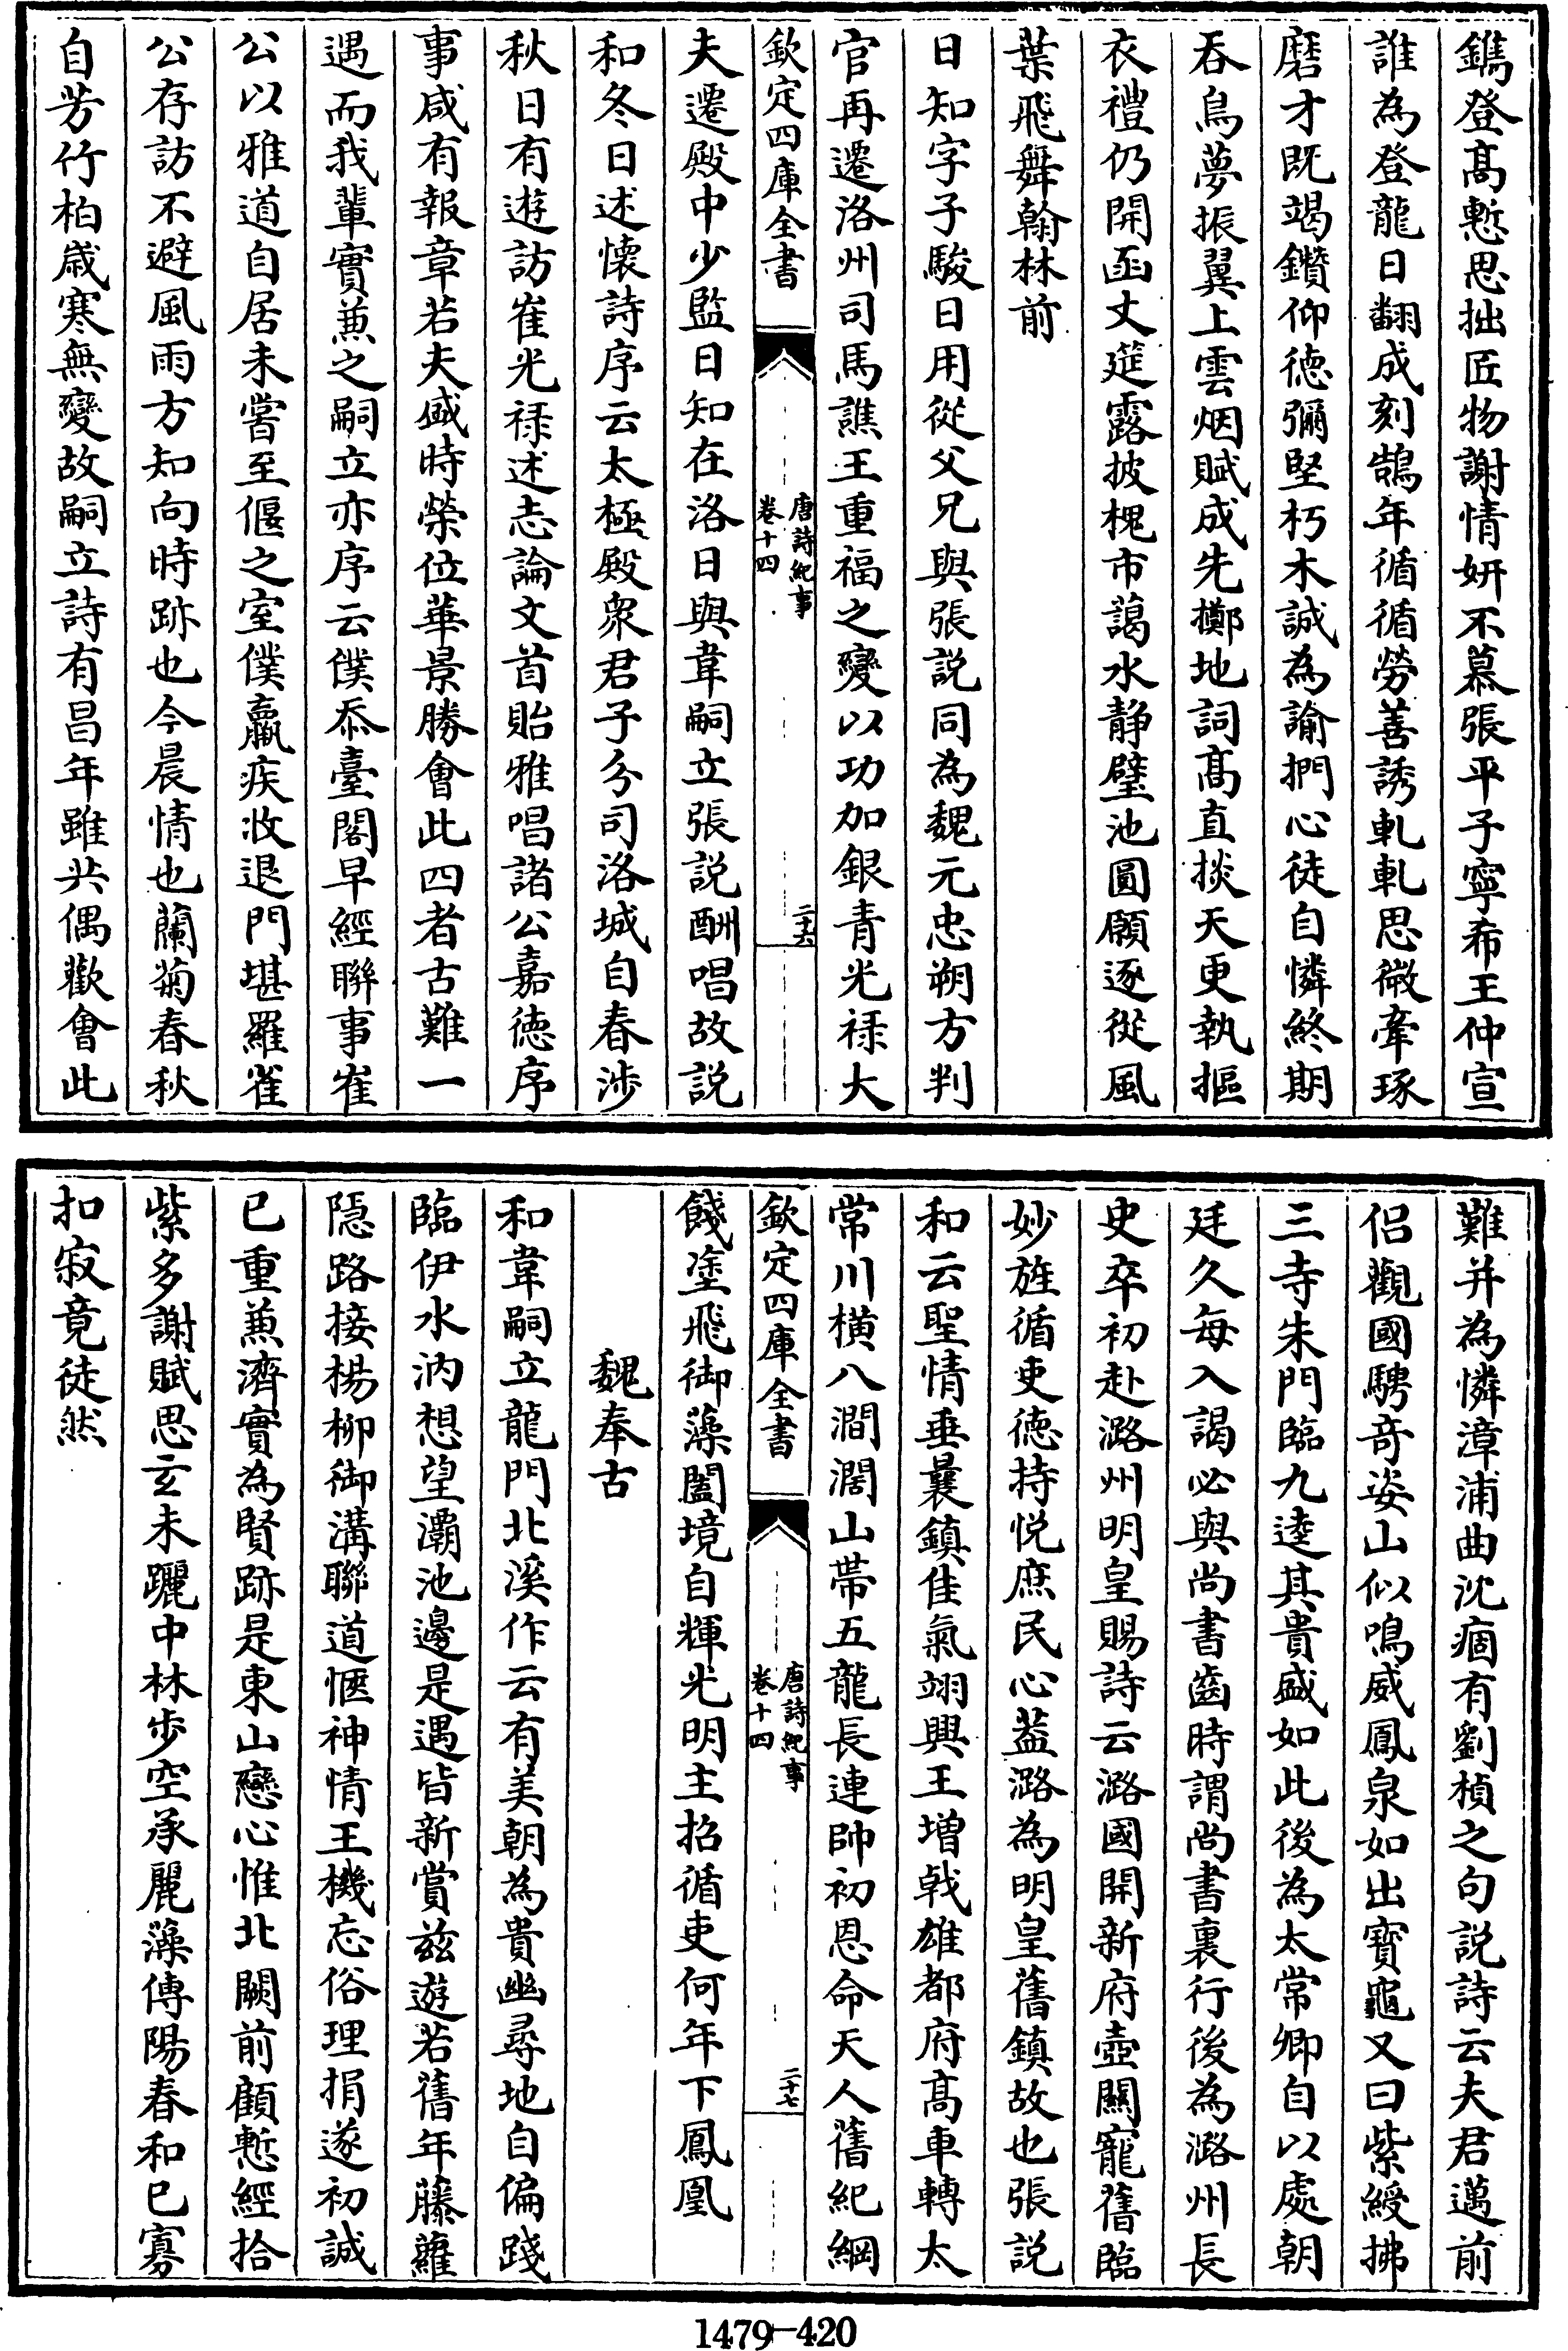 鐫登髙慙思拙匠物謝情妍不慕張平子寧希王仲宣
誰為登龍日翻成刻鵠年循循勞善誘軋軋思微牽琢
磨才既竭鑽仰徳彌堅朽木誠為諭捫心徒自憐終期
吞鳥夢振翼上雲烟賦成先擲地詞髙直掞天更執摳
衣禮仍開函丈筵露披槐市藹水靜璧池圓願逐從風
葉飛舞翰林前
日知字子駿日用從父兄與張説同為魏元忠朔方判
官再遷洛州司馬譙王重福之變以功加銀青光禄大
欽定四庫全書
唐詩紀事
卷十四
二十六
夫遷殿中少監日知在洛日與韋嗣立張説酬唱故説
和冬日述懐詩序云太極殿衆君子分司洛城自春渉
秋日有遊訪崔光禄述志論文首貽雅唱諸公嘉徳序
事咸有報章若夫盛時榮位華景勝㑹此四者古難一
遇而我輩實兼之嗣立亦序云僕忝臺閣早經聨事崔
公以雅道自居未嘗至偃之室僕羸疾收退門堪羅雀
公存訪不避風雨方知向時跡也今晨情也蘭菊春秋
自芳竹柏嵗寒無變故嗣立詩有昌年雖共偶歡㑹此
難并為憐漳浦曲沈痼有劉楨之句説詩云夫君邁前
侣觀國騁奇姿山似鳴威鳳泉如出寳龜又曰紫綬拂
三寺朱門臨九逵其貴盛如此後為太常卿自以處朝
廷久每入謁必與尚書齒時謂尚書裏行後為潞州長
史卒初赴潞州明皇賜詩云潞國開新府壺闗寵舊臨
妙旌循吏徳持悦庶民心葢潞為明皇舊鎮故也張説
和云聖情垂曩鎮佳氣翊興王増㦸雄都府髙車轉太
常川横八澗濶山帶五龍長連帥初恩命天人舊紀綱
欽定四庫全書
唐詩紀事
卷十四
二十七
餞塗飛御藻闔境自輝光明主招循吏何年下鳳凰
魏奉古
和韋嗣立龍門北溪作云有美朝為貴幽尋地自偏踐
臨伊水汭想望灞池邊是遇皆新賞兹遊若舊年藤蘿
隠路接楊柳御溝聨道愜神情王機忘俗理捐遂初誠
已重兼濟實為賢跡是東山戀心惟北闕前顧慙經拾
紫多謝賦思玄未躧中林歩空承麗藻傳陽春和已寡
扣寂竟徒然
1479-420